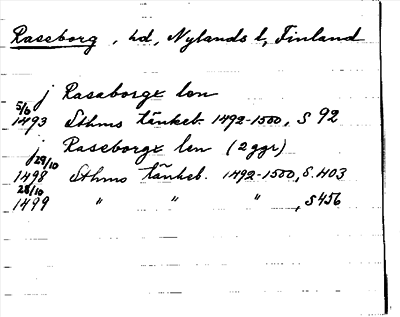 Raseborg, hd, Nylands l, Finland
j Rasaborgx len
5/6
1493 Sthms tänkeb. 1492-1500, S 92
j Raseborgx len (2 ggr)
29/10
1498 Sthms tänkeb. 1492-1500, S. 403
28/10
1499 " " ", S 456